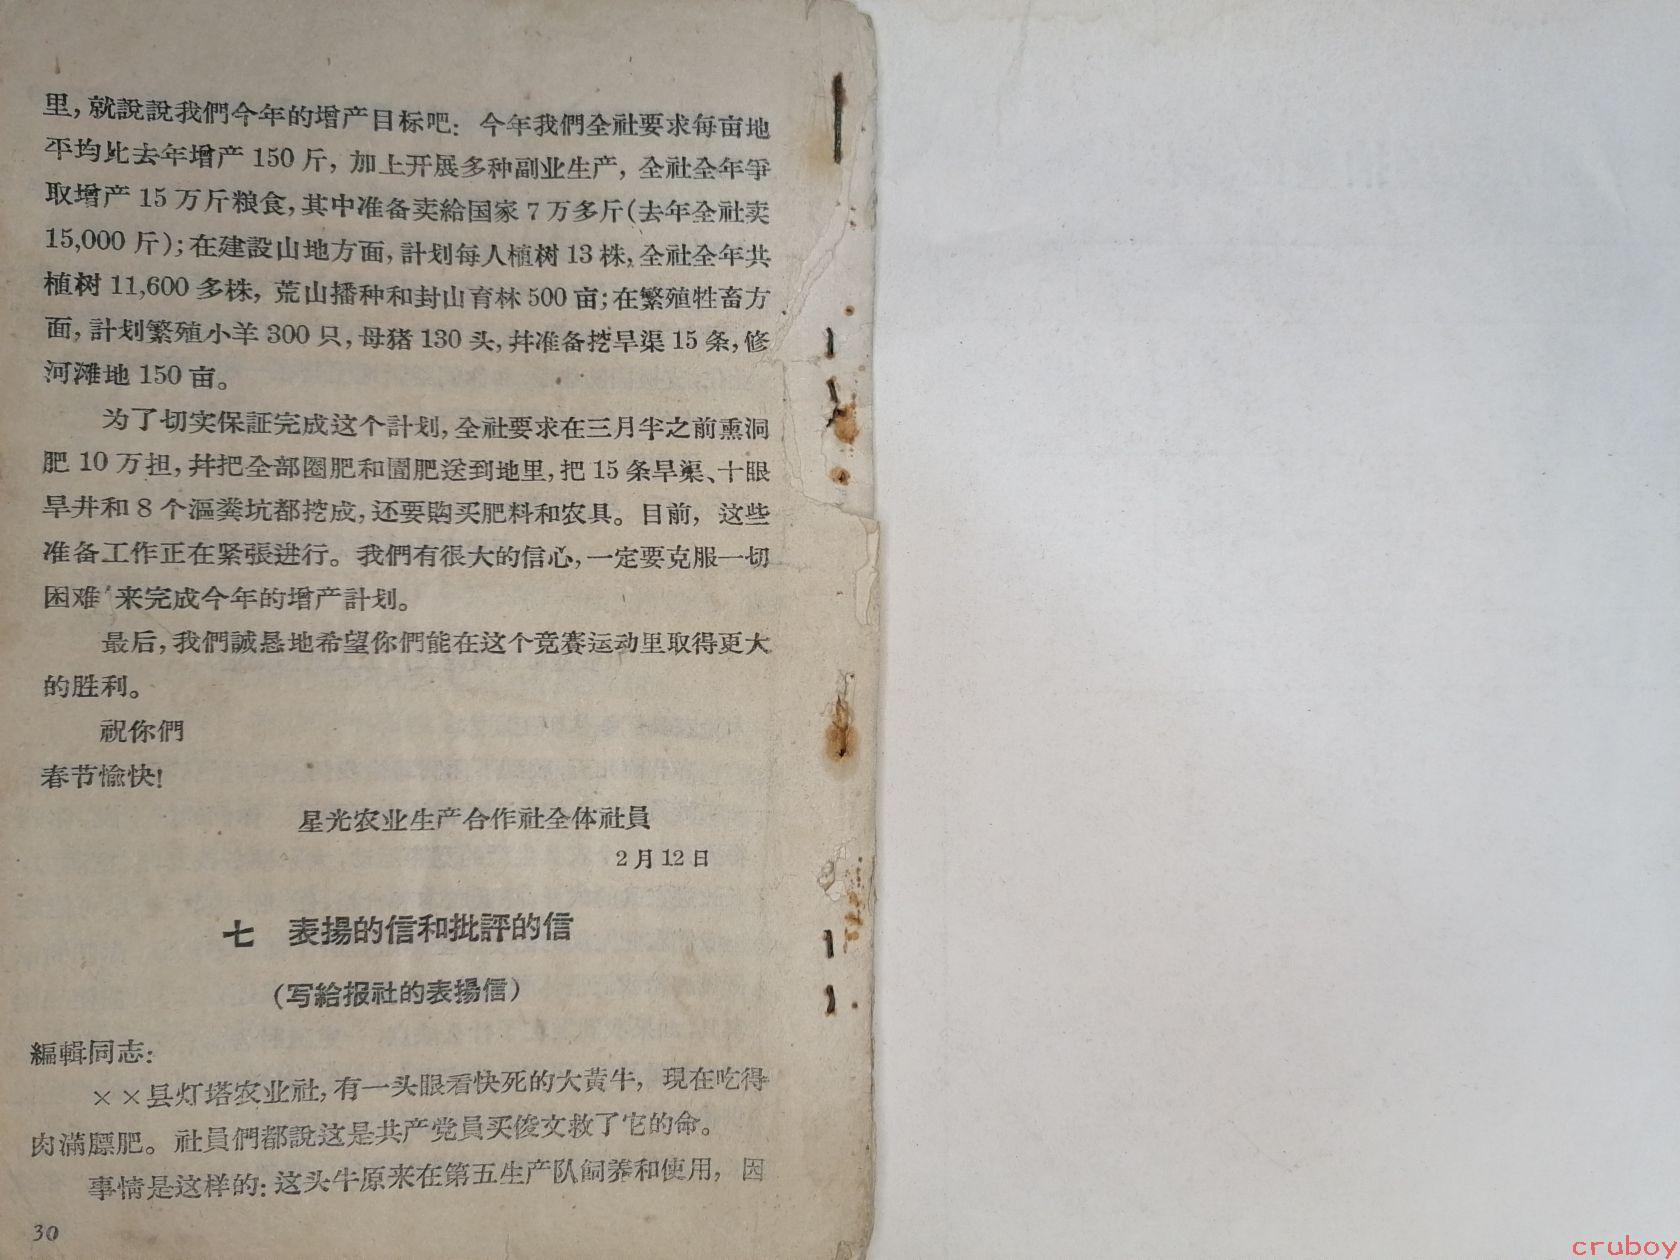 里，就說說我們今年的增产目标吧：今年我們全社要求每亩地
平均比去年增产 150 斤，加上开展多种副业生产，全社全年爭
取增产 15 万斤粮食，其中准备卖給国家 7 万多斤（去年全社卖
15,000 斤）；在建設山地方面，計划每人植树 13 株，全社全年共
植树 11,600 多株，荒山播种和封山育林 500 亩；在繁殖牲畜方
面，計划繁殖小羊 300 只，母猪 130 头，幷准备挖旱渠 15 条，修
河滩地 150 亩。
为了切实保証完成这个計划，全社要求在三月半之前熏洞
肥 10 万担，幷把全部圈肥和圊肥送到地里，把 15 条旱渠、十眼
旱井和 8 个漚粪坑都挖成，还要購买肥料和农具。目前，这些
准备工作正在紧張进行。我們有很大的信心，一定要克服一切
困难 来完成今年的增产計划。
最后，我們誠恳地希望你們能在这个竞賽运动里取得更大
的胜利。
祝你們
春节愉快！
星光农业生产合作社全体社員
2 月 12 日
七 表揚的信和批評的信
（写給报社的表揚信）
編輯同志：
××县灯塔农业社，有一头眼看快死的大黄牛，現在吃得
肉滿膘肥。社員們都說这是共产党員买俊文救了它的命。
事情是这样的：这头牛原来在第五生产队飼养和使用，因
30
cruboy